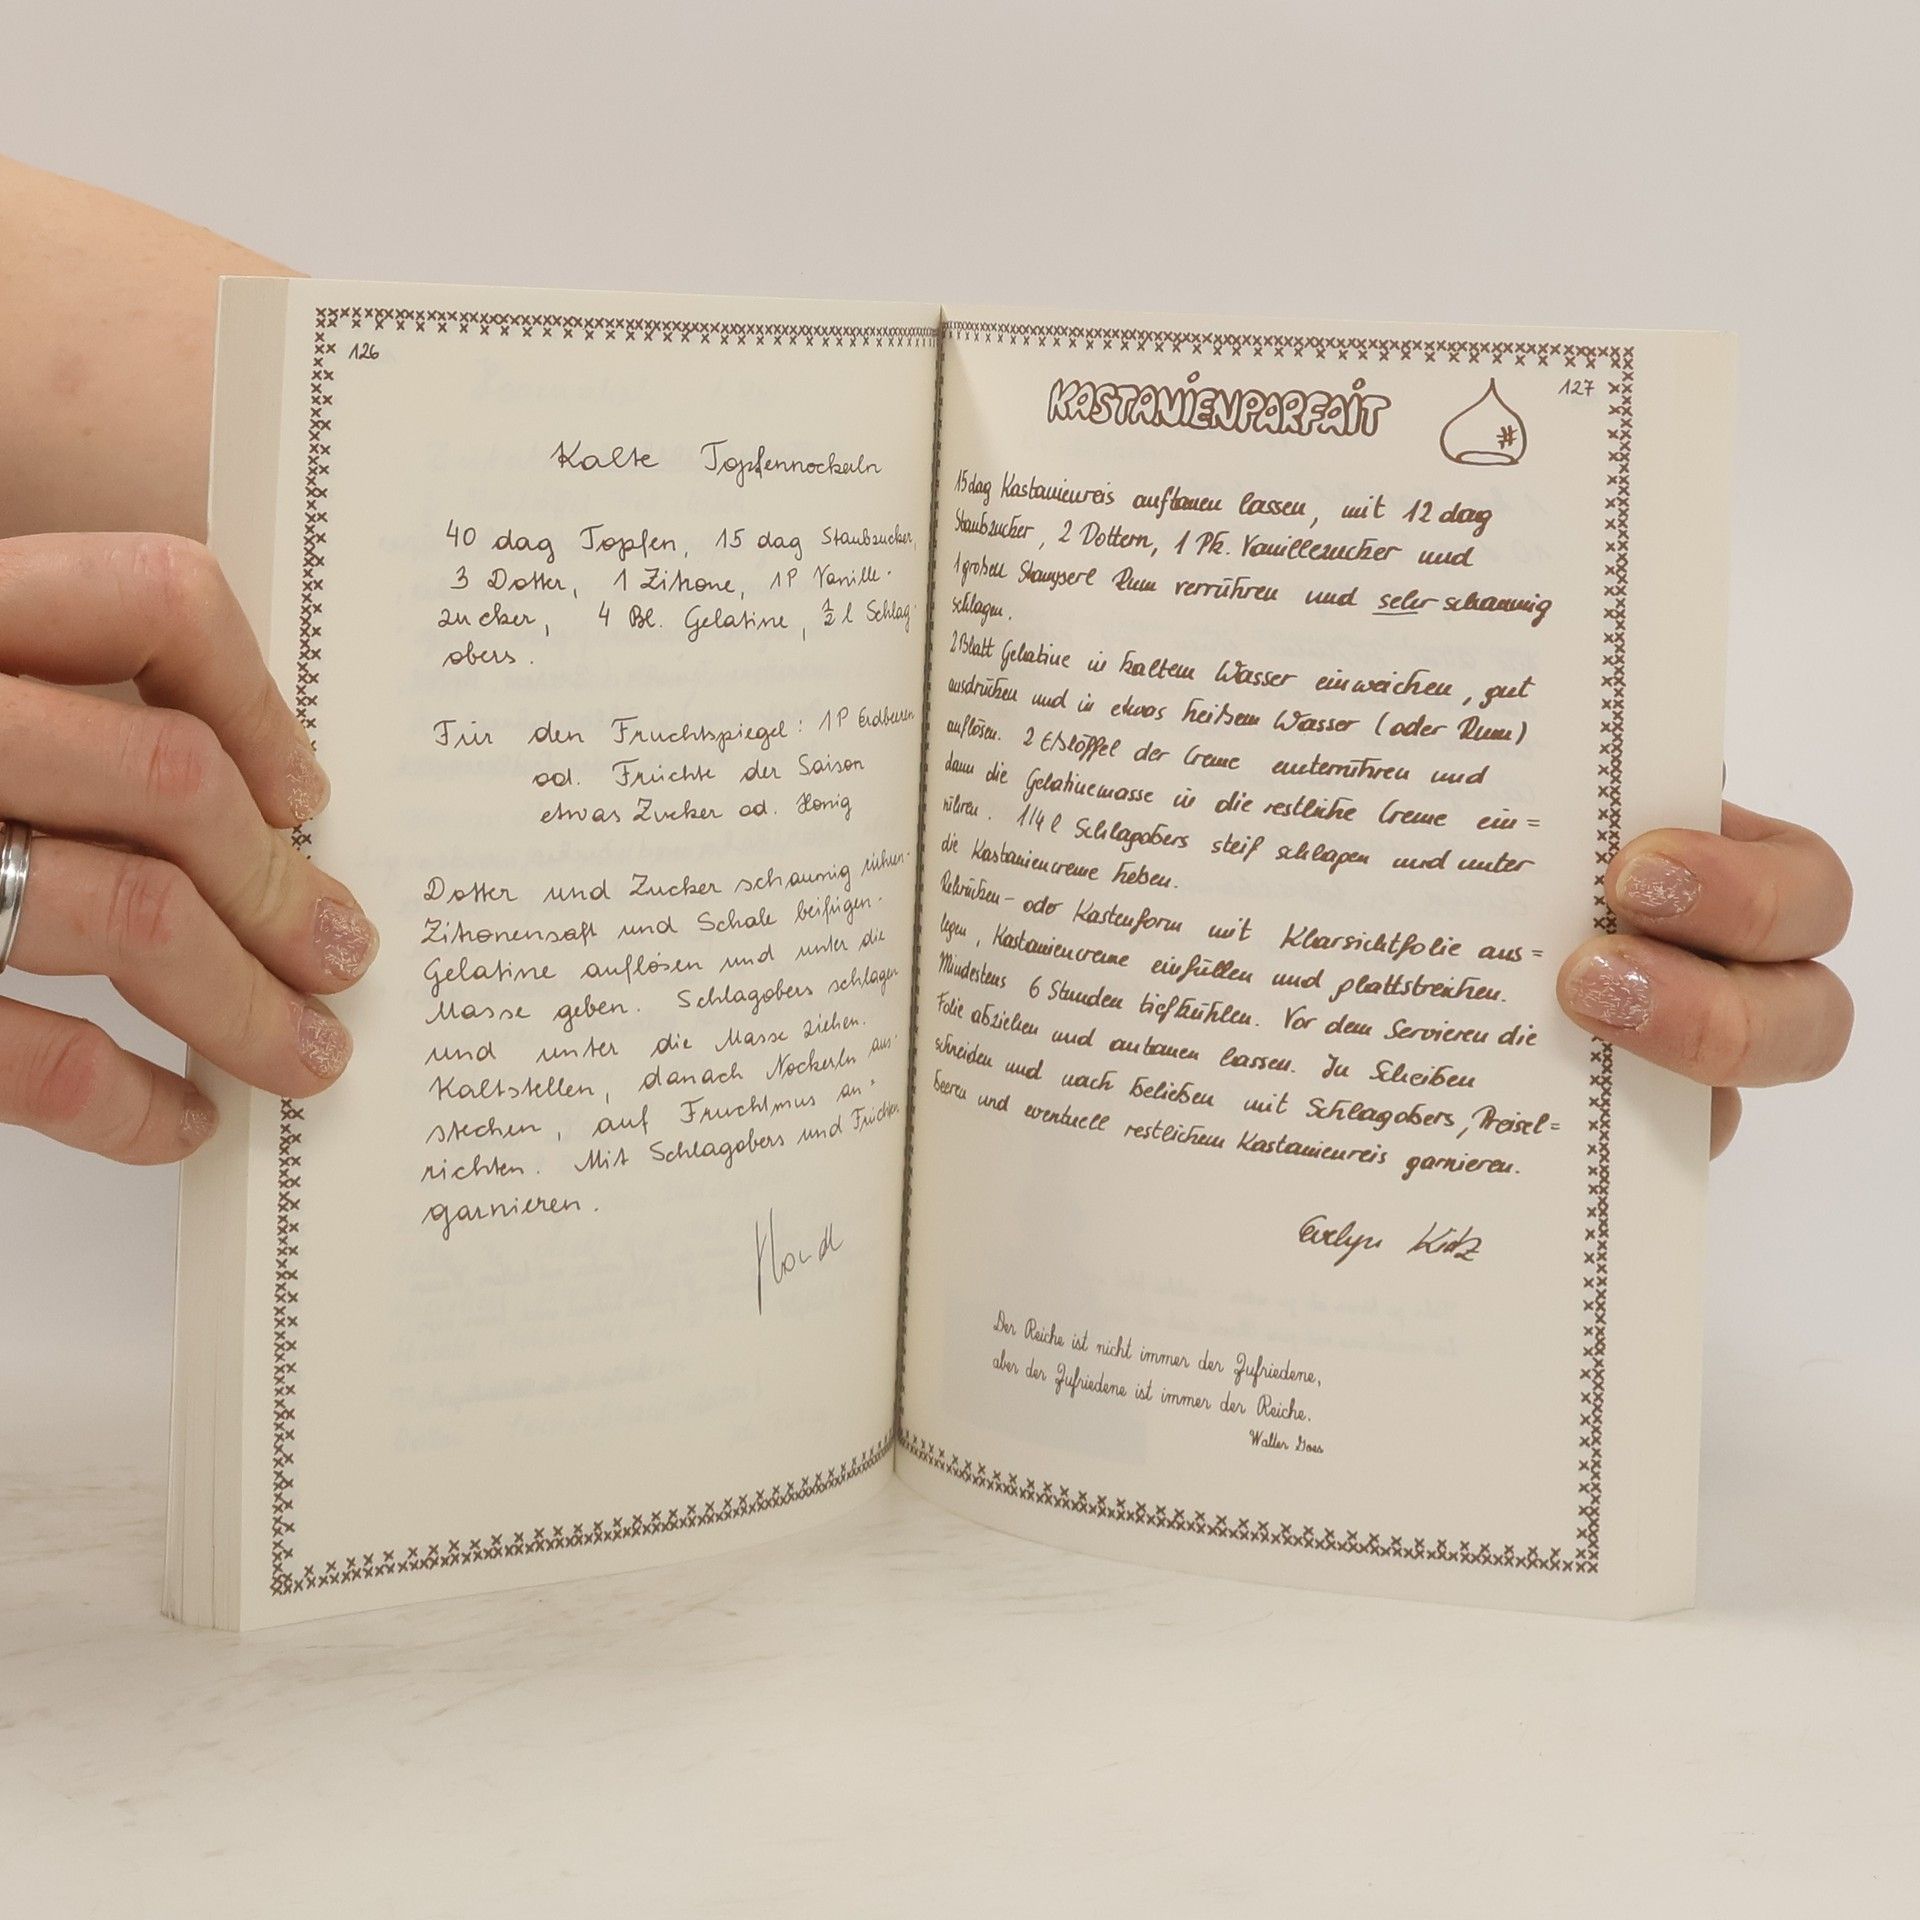 126
Kalte Topfennockerln
40 dag Topfen, 15 dag Staubzucker,
3 Dotter, 1 Zitrone, 1P Vanille-
zucker, 4 Bl. Gelatine, ½ l Schlag-
obers.
Für den Fruchtspiegel: 1P Erdbeeren
od. Früchte der Saison
etwas Zucker od. Honig
Dotter und Zucker schaumig rühren-
Zitronensaft und Schale beifügen-
Gelatine auflösen und unter die
Masse geben. Schlagobers schlagen
und unter die Masse ziehen.
Kaltstellen, danach Nockerln aus-
stechen, auf Fruchtmus an-
richten. Mit Schlagobers und Früchten
garnieren.
127
KASTANIENPARFAIT
15dag Kastanienreis auftauen lassen, mit 12 dag
Staubzucker, 2 Dottern, 1 Pk. Vanillezucker und
1 großen Stamperl Rum verrühren und sehr schaumig
schlagen.
2 Blatt Gelatine in kaltem Wasser einweichen, gut
ausdrücken und in etwas heißem Wasser (oder Rum)
auflösen. 2 Eßlöffel der Creme unterrühren und
dann die Gelatinemasse in die restliche Creme ein=
rühren. 1/4 l Schlagobers steif schlagen und unter
die Kastaniencreme heben.
Rehrücken- oder Kastenform mit Klarsichtfolie aus=
legen, Kastaniencreme einfüllen und plattstreichen.
Mindestens 6 Stunden tiefkühlen. Vor dem Servieren die
Folie abziehen und antauen lassen. In Scheiben
schneiden und nach belieben mit Schlagobers, Preisel=
beeren und eventuell restlichem Kastanienreis garnieren.
Evelyn
Der Reiche ist nicht immer der Zufriedene,
aber der Zufriedene ist immer der Reiche.
Walter